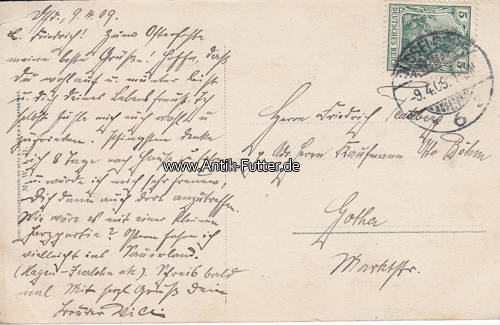 Dsdf., 9.4.09.
L. Friedrich! Zum Osterfeste
meine besten Grüße! Hoffe, daß
Du wohlauf u. munter bist
u. Dich Deines Lebens freust. Ich
selbst fühle mich auch wohl u.
zufrieden. Pfingsten denke
ich 8 Tage nach Hause
u. würde ich mich sehr freuen,
Dich dann auch dort anzutreffen.
Wie wäre es mit einer kleinen
Harzpartie? Ostern fahre ich
vielleicht ins Sauerland.
(Hagen-Iserlohn etc.) Schreib bald
mal. Mit herzl. Gruß Dein
Bruder Willi
5 5
DEUTSCHES REICH
DÜSSELDORF
-9.4.09.
6
Herrn Friedrich
Adr. Herrn Kaufmann Otto Böhm
Gotha
Marktstr.
www.Antik-Futter.de